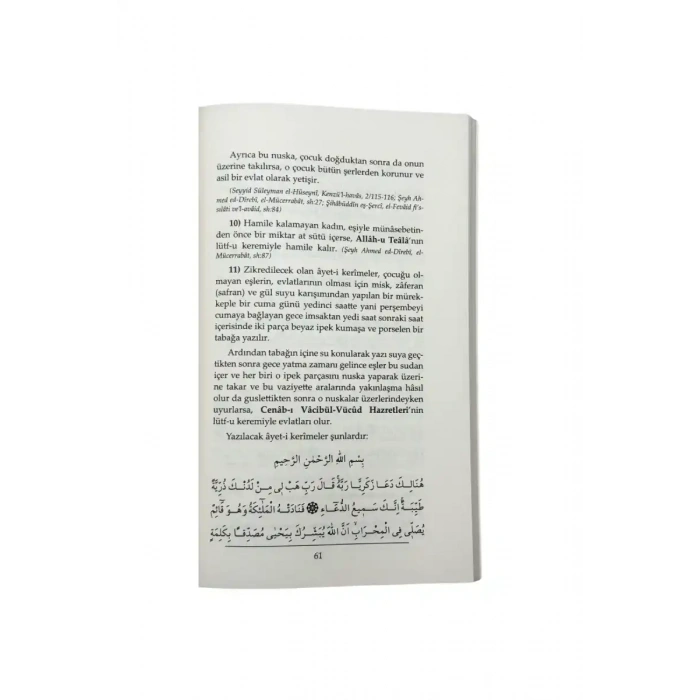 Ayrıca bu nuska, çocuk doğduktan sonra da onun
üzerine takılırsa, o çocuk bütün şerlerden korunur ve
asil bir evlat olarak yetişir.
(Seyyid Süleyman el-Hüseynî, Kenzü'l-havâs, 2/115-116; Şeyh Ah-
med ed-Dîrebî, el-Mücerrabât, sh:27; Şihâbüddîn eş-Şercî, el-Fevâid fi's-
salâti ve'l-avâid, sh:84)
10) Hamile kalamayan kadın, eşiyle münâsebetin-
den önce bir miktar at sütü içerse, Allâh-u Teâlâ'nın
lütf-u keremiyle hamile kalır. (Şeyh Ahmed ed-Dîrebî, el-
Mücerrabât, sh:87)
11) Zikredilecek olan âyet-i kerîmeler, çocuğu ol-
mayan eşlerin, evlatlarının olması için misk, zâferan
(safran) ve gül suyu karışımından yapılan bir mürek-
keple bir cuma günü yedinci saatte yani perşembeyi
cumaya bağlayan gece imsaktan yedi saat sonraki saat
içerisinde iki parça beyaz ipek kumaşa ve porselen bir
tabağa yazılır.
Ardından tabağın içine su konularak yazı suya geç-
tikten sonra gece yatma zamanı gelince eşler bu sudan
içer ve her biri o ipek parçasını nuska yaparak üzeri-
ne takar ve bu vaziyette aralarında yakınlaşma hâsıl
olur da guslettikten sonra o nuskalar üzerlerindeyken
uyurlarsa, Cenâb-ı Vâcibül-Vücûd Hazretleri'nin
lütf-u keremiyle evlatları olur.
Yazılacak âyet-i kerîmeler şunlardır:
بِسْمِ اللّٰهِ الرَّحْمٰنِ الرَّحِيمِ
هُنَالِكَ دَعَا زَكَرِيَّا رَبَّهُ قَالَ رَبِّ هَبْ لِى مِنْ لَدُنْكَ ذُرِّيَّةً
طَيِّبَةً اِنَّكَ سَمِيعُ الدُّعَاءِ ۞ فَنَادَتْهُ الْمَلٰٓئِكَةُ وَهُوَ قَائِمٌ
يُصَلِّى فِى الْمِحْرَابِ اَنَّ اللّٰهَ يُبَشِّرُكَ بِيَحْيٰى مُصَدِّقًا بِكَلِمَةٍ
61